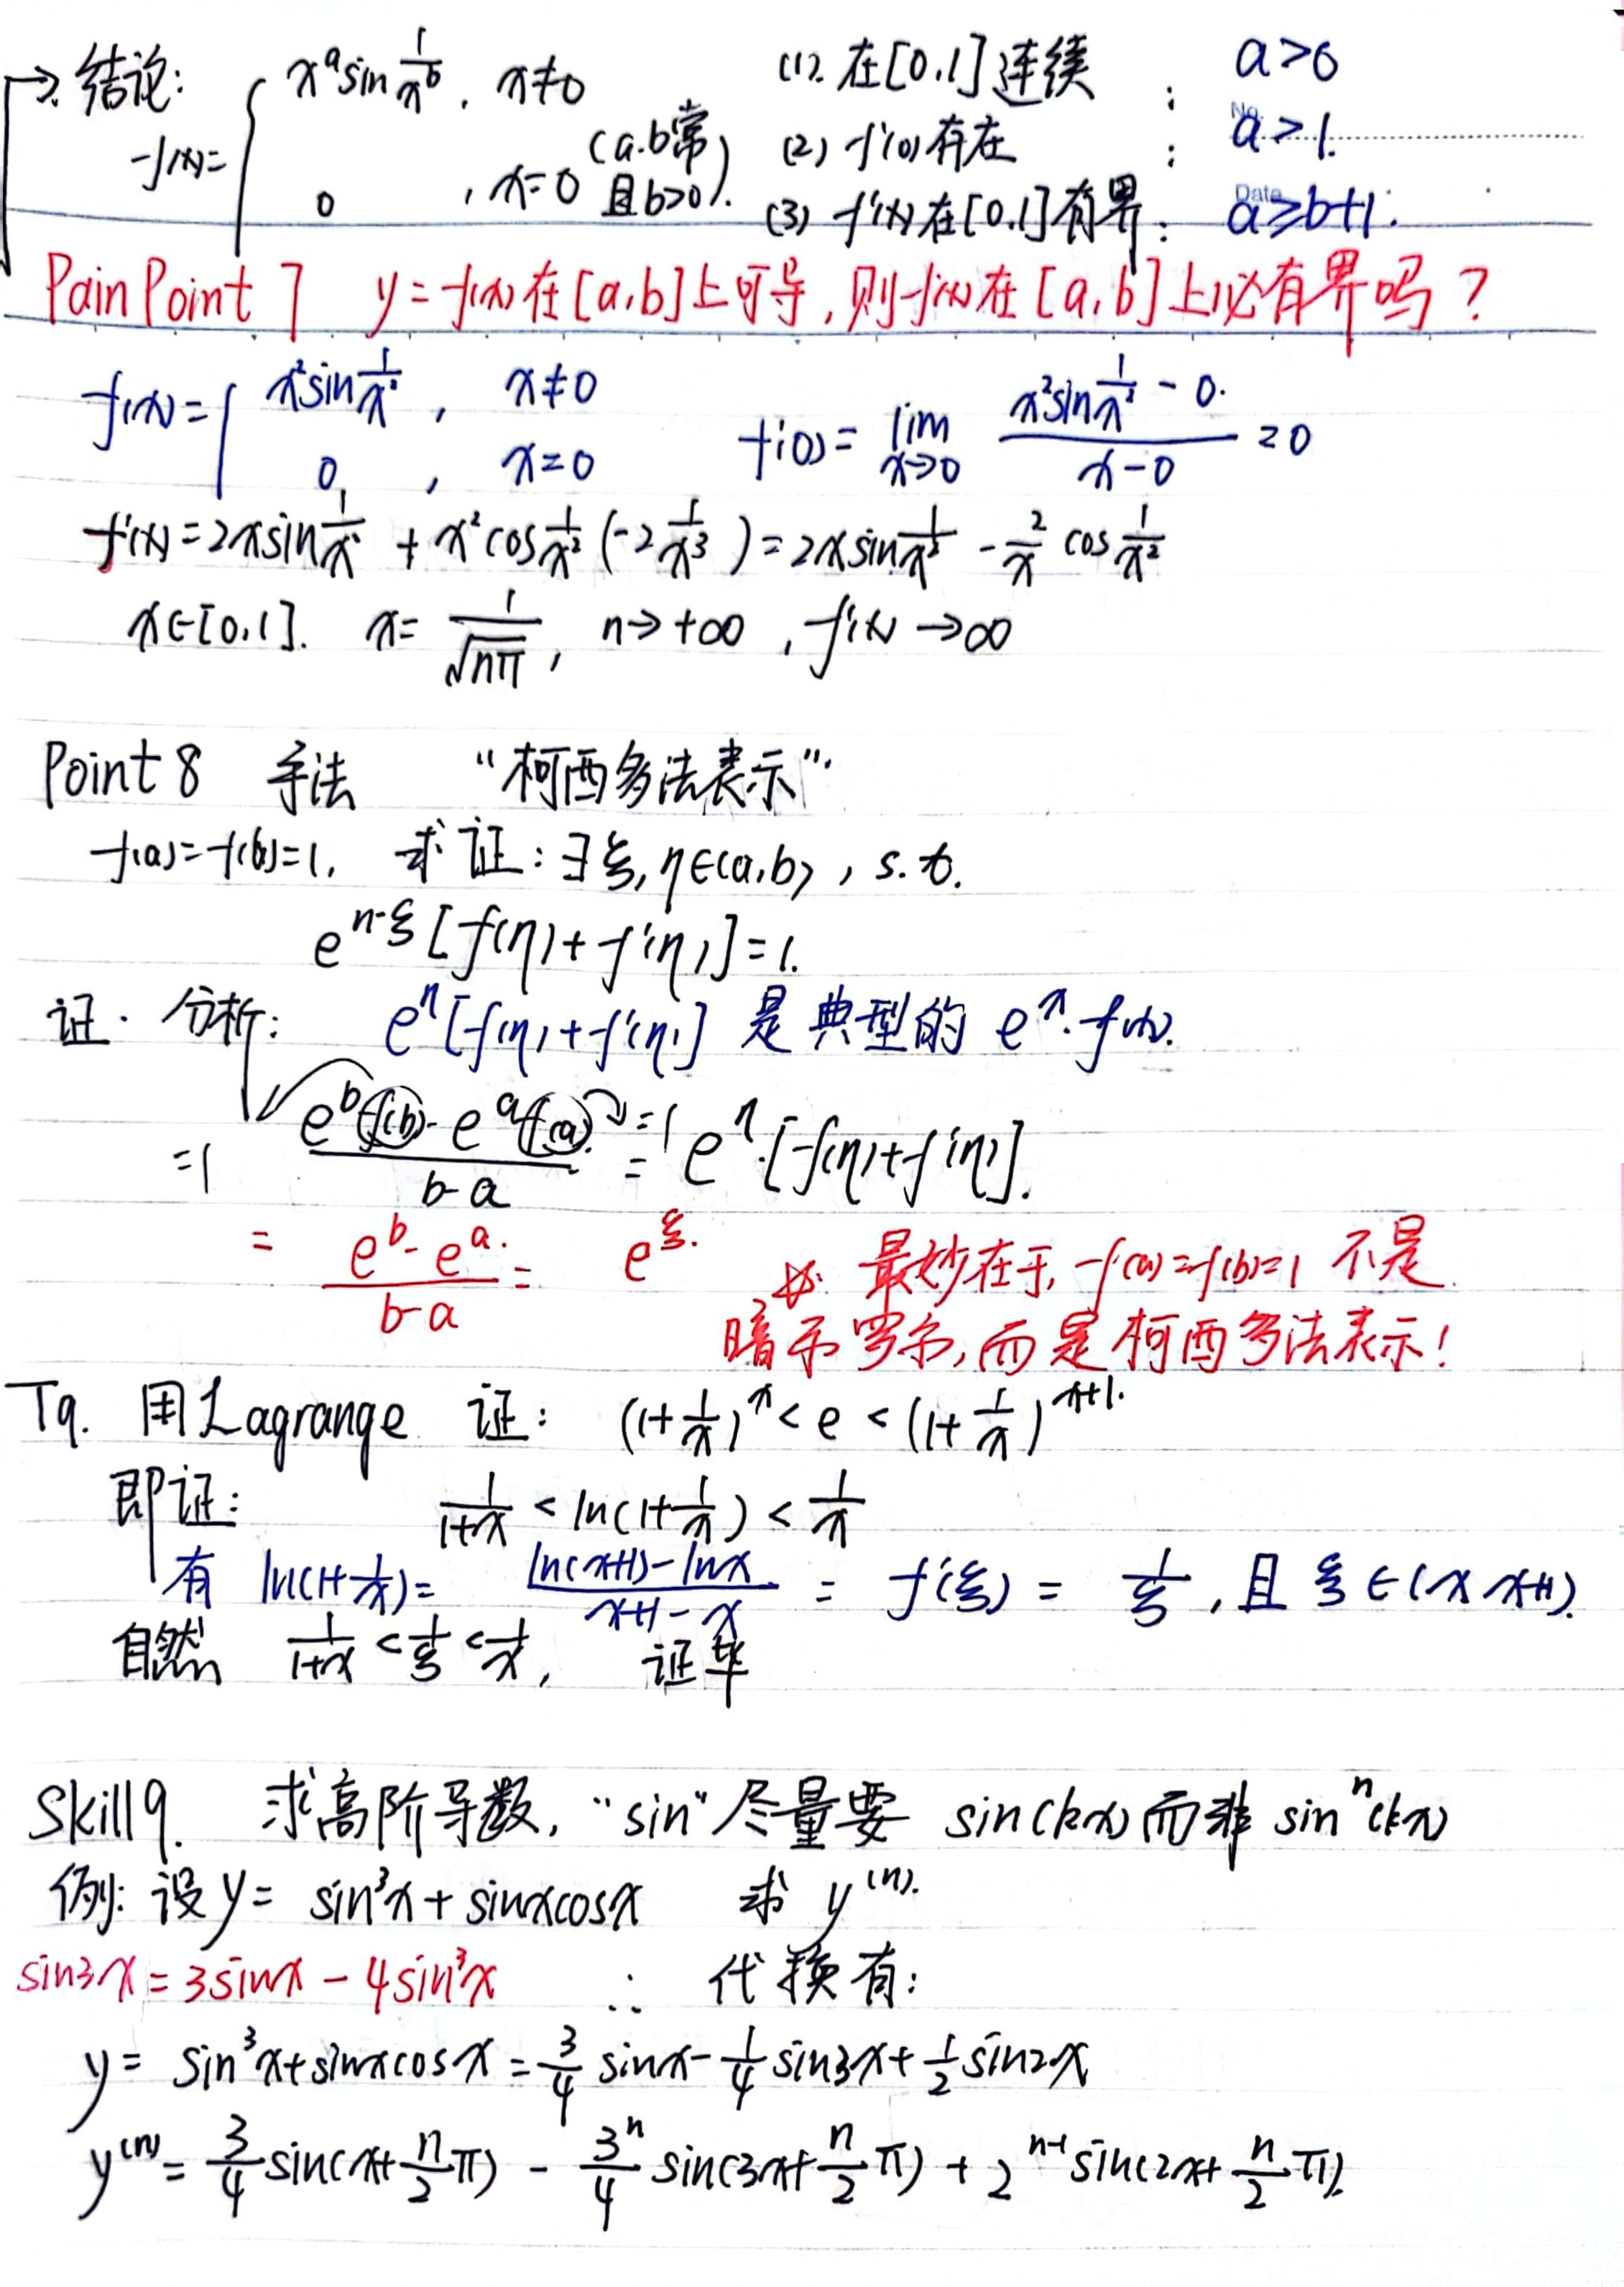 → 结论: f(x)= { x^a sin 1/x^b , x≠0
0 , x=0 (a.b常 且b>0).
(1). 在[0,1]连续 ; a>0
(2) f'(0)存在 ; a>1.
(3) f'(x)在[0,1]有界: a≥b+1.
No.
Date
Pain Point 7 y=f(x)在[a,b]上可导,则f'(x)在[a,b]上必有界吗?
f(x)= { x²sin 1/x² , x≠0
0 , x=0
f'(0)= lim x→0 (x²sin 1/x² - 0.)/(x-0) =0
f'(x)=2xsin 1/x² + x²cos 1/x² (-2 1/x³)=2xsin 1/x² - 2/x cos 1/x²
x∈[0,1]. x= 1/√(nπ), n→+∞ ,f'(x)→∞
Point 8 手法 “柯西多法表示”
f(a)=f(b)=1, 求证:∃ξ,η∈(a,b), s.t.
e^(η-ξ)[f(η)+f'(η)]=1.
证. 分析: e^η[f(η)+f'(η)] 是典型的 e^x·f(x).
=1 (e^b f(b)-e^a f(a))/(b-a) =1 = e^η·[f(η)+f'(η)].
= (e^b-e^a)/(b-a) = e^ξ.
※. 最妙在于, f(a)=f(b)=1 不是
暗示罗尔,而是柯西多法表示!
T9. 用Lagrange 证: (1+1/x)^x < e < (1+1/x)^(x+1).
即证: 1/(1+x) < ln(1+1/x) < 1/x
有 ln(1+1/x)= (ln(x+1)-lnx)/(x+1-x) = f'(ξ) = 1/ξ ,且 ξ∈(x x+1).
自然 1/(1+x) < 1/ξ < 1/x, 证毕
Skill 9. 求高阶导数,“sin”尽量要 sin(kx)而非 sin^n(kx)
例: 设y= sin³x+sinxcosx 求 y^(n).
sin3x=3sinx-4sin³x ∴ 代换有:
y= sin³x+sinxcosx=3/4 sinx-1/4 sin3x+1/2 sin2x
y^(n)= 3/4 sin(x+n/2 π) - 3^n/4 sin(3x+n/2 π) + 2^(n-1) sin(2x+n/2 π).